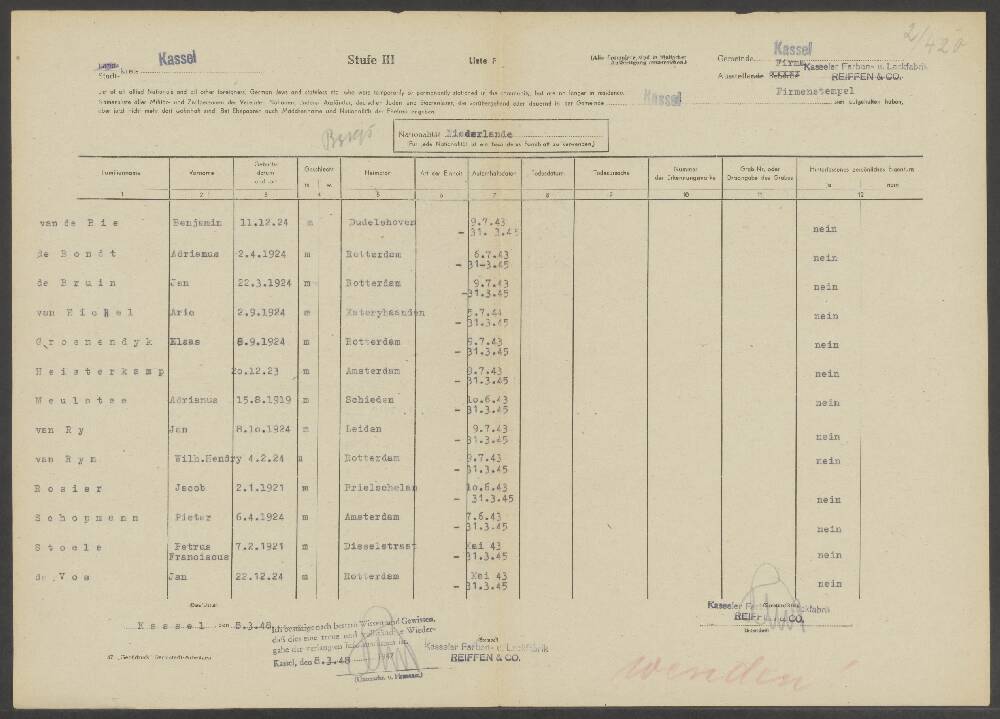 2/420
Kassel Stufe III Liste F Gemeinde Kassel
Stadt- kreis Firma Kasseler Farben- u. Lackfabrik
Ausstellende REIFFEN & CO.
Firmenstempel
List of all allied Nationals and all other foreigners, German Jews and stateless etc. who were temporarily or permanently stationed in the community, but are no longer in residence.
Kassel
Namensliste aller Militär- und Zivilpersonen der Vereinten Nationen, anderer Ausländer, deutscher Juden und Staatenloser, die vorübergehend oder dauernd in der Gemeinde sich aufgehalten haben,
aber jetzt nicht mehr dort wohnhaft sind. Bei Ehepaaren auch Mädchenname und Nationalität der Ehefrau angeben.
Nationalität Niederlande
(Für jede Nationalität ist ein besonderes Formblatt zu verwenden)
Familienname Vorname Geburtsdatum und -ort Geschlecht m w Heimatort Art der Einheit Aufenthaltsdaten Todesdatum Todesursache Nummer der Erkennungsmarke Grab Nr. oder Ortsangabe des Grabes Hinterlassenes persönliches Eigentum ja nein
1 2 3 4 5 6 7 8 9 10 11 12
van de Bie Benjamin 11.12.24 m Dudelshoven 9.7.43
- 31. 3.45 nein
de Bondt Adrianus 2.4.1924 m Rotterdam 6.7.43 nein
- 31-3.45
de Bruin Jan 22.3.1924 m Rotterdam 9.7.43 nein
-31.3.45
van Eickel Arie 2.9.1924 m 5.7.44 nein
- 31.3.45
Groenendyk Klaas 8.9.1924 m Rotterdam 9.7.43 nein
- 31.3.45
Heisterkamp 2o.12.23 m Amsterdam 9.7.43 nein
- 31.3.45
Meulstee Adrianus 15.8.1919 m Schieden 1o.6.43 nein
- 31.3.45
van Ry Jan 8.1o.1924 m Leiden 9.7.43
- 31.3.45 nein
van Ryn Wilh.Hendry 4.2.24 m Rotterdam 9.7.43 nein
- 31.3.45
Rosier Jacob 2.1.1921 m Brielschelan 1o.6.43
- 31.3.45 nein
Schopmann Pieter 6.4.1924 m Amsterdam 7.6.43
- 31.3.45 nein
Stoele Petrus 7.2.1921 m Disselstraat Mai 43
Franciscus - 31.3.45 nein
de Vos Jan 22.12.24 m Rotterdam Mai 43
- 31.3.45 nein
Kassel den 8.3.48
Ich bestätige nach bestem Wissen und Gewissen,
daß dies eine treue und vollständige Wiedergabe der verlangten Informationen ist.
Kassel, den 8.3.48 1947
Kasseler Farben- u. Lackfabrik
REIFFEN & CO.
Kasseler Farben- u. Lackfabrik
REIFFEN & CO.
wenden